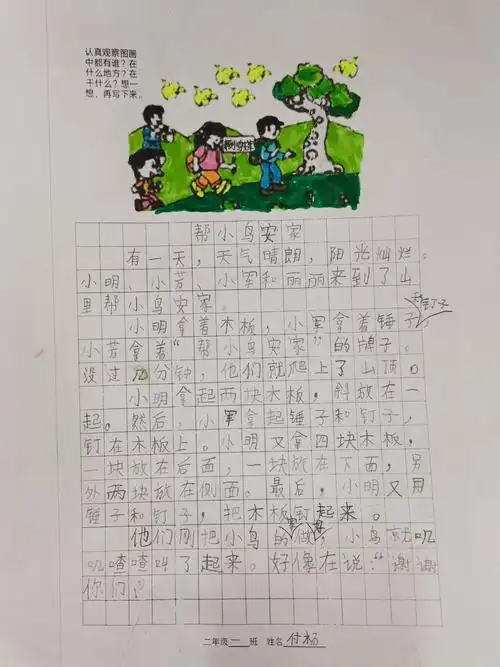 认真观察图画
中都有谁？在
什么地方？在
干什么？想一
想，再写下来。
帮小鸟安家
有一天，天气晴朗，阳光灿烂。
小明、小芳、小军和丽丽来到了山
里帮小鸟安家。
和钉子
小明拿着木板，小军拿着锤子，
小芳拿着“帮小鸟安家”的牌子。
没过几分钟，他们就爬上了山顶。
小明拿起两块木板，斜放在一
起。然后，小军拿起锤子和钉子，
钉在木板上。小明又拿四块木板，
一块放在后面，一块放在下面，另
外两块放在侧面。最后，小明又用
锤子和钉子，把木板钉起来。
他们刚把小鸟的家做好，小鸟就叽
叽喳喳叫了起来。好像在说：“谢谢
你们！
二年级一班 姓名付杨